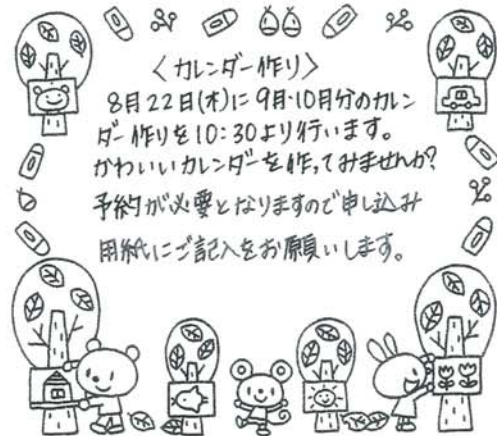 〈カレンダー作り〉
8月22日(木)に9月・10月分のカレン
ダー作りを10:30より行います。
かわいいカレンダーを作ってみませんか?
予約が必要となりますので申し込み
用紙にご記入をお願いします。